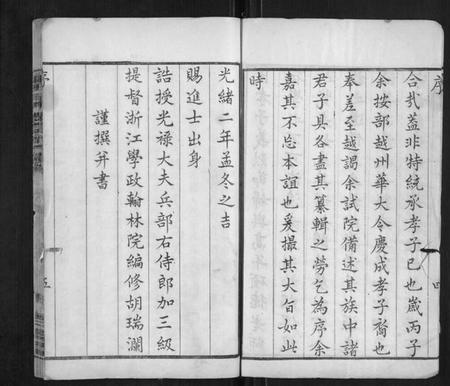 序
合哉蓋非特統承孝子已也歲丙子
余按部越州華大令慶成孝子裔也
奉差至越謁余試院備述其族中諸
君子具各盡其纂輯之勞乞為序余
嘉其不忘本誼也爰撮其大旨如此
時
四
光緒二年孟冬之吉
賜進士出身
誥授光祿大夫兵部右侍郎加三級
提督浙江學政翰林院編修胡瑞瀾
謹撰并書
序
五